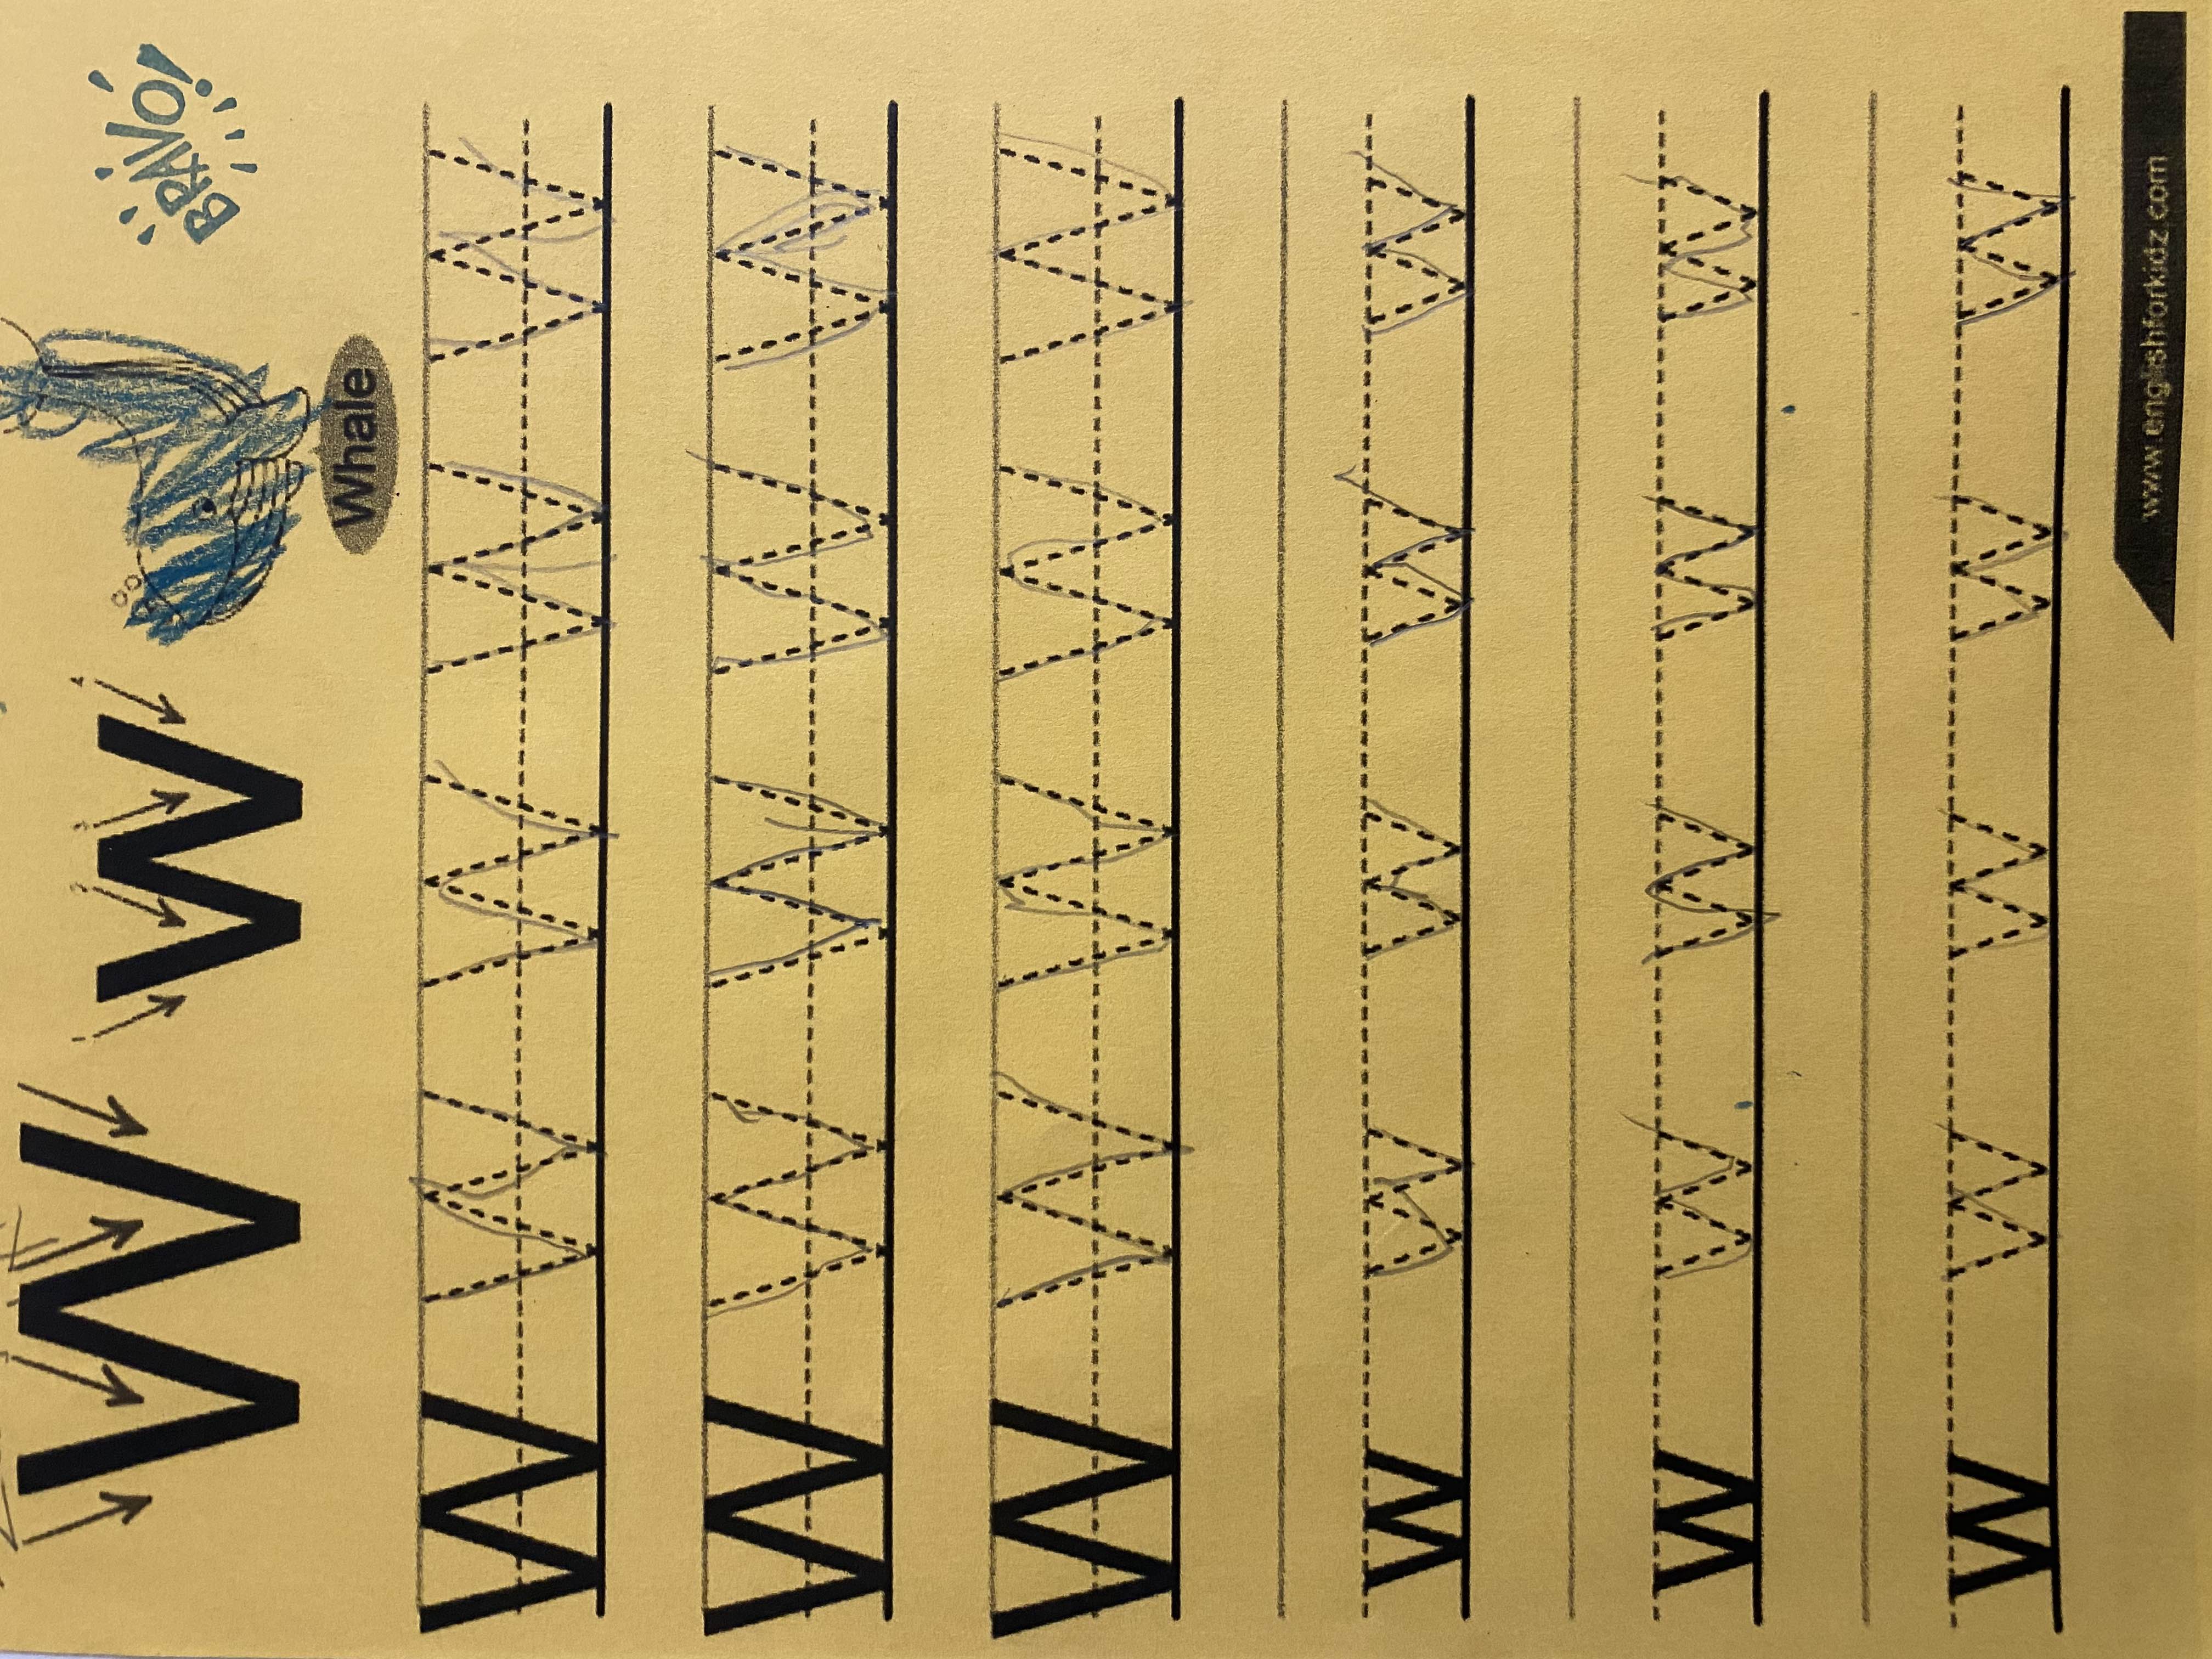 W w
1 2 3 4
BRAVO!
Whale
W W W W W
W W W W W
W W W W W
w w w w w
w w w w w
w w w w w
www.englishforkidz.com